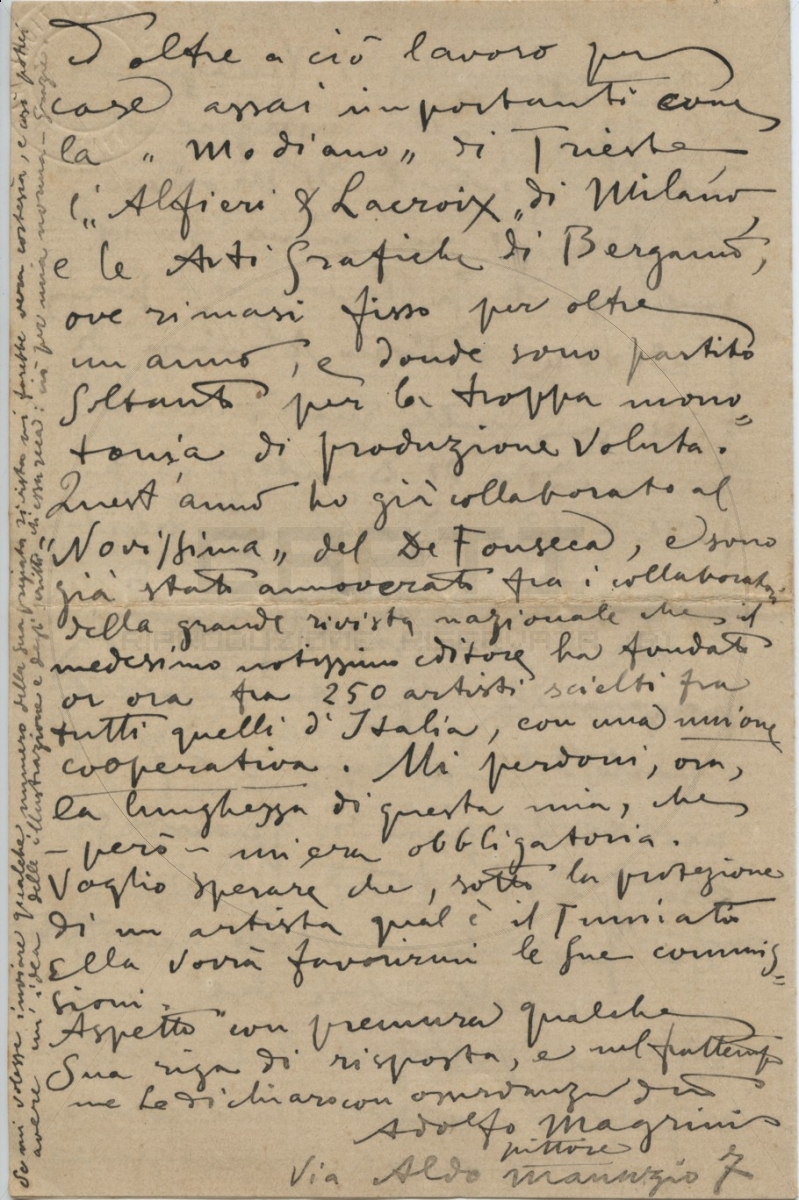 D'oltre a ciò lavoro per
case assai importanti come
la "Modiano" di Trieste
l'"Alfieri & Lacroix" di Milano,
e le Arti Grafiche di Bergamo,
ove rimasi fisso per oltre
un anno, e donde sono partito
soltanto per la troppa mono=
tonia di produzione voluta.
Quest'anno ho già collaborato al
"Novissima" del De Fonseca, e sono
già stato annoverato fra i collaboratori
della grande rivista nazionale che il
medesimo notissimo editore ha fondato
or ora fra 250 artisti scielti fra
tutti quelli d'Italia, con una unione
cooperativa. Mi perdoni, ora,
la lunghezza di questa mia, che
– però – mi era obbligatoria.
Voglio sperare che, sotto la protezione
di un artista qual'è il Tumiati
Ella vorrà favorirmi le Sue commis=
sioni.
Aspetto con premura qualche
Sua riga di risposta, e nel frattempo
me Le dichiaro con osservanza
Adolfo Magrini
pittore
Via Aldo Manuzio 7
Se mi volesse inviare qualche numero della Sua pregiata rivista mi farebbe vera cortesia, e così potrei
avere un'idea delle illustrazioni e degli scritti di essa: ciò per mia norma. – Grazie.